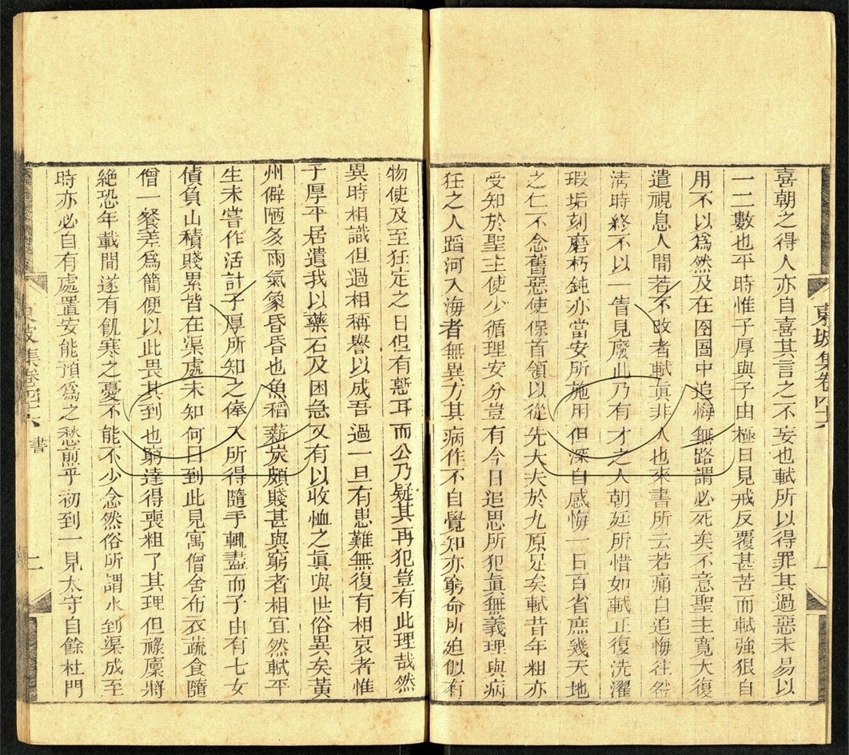 喜朝之得人亦自喜其言之不妄也軾所以得罪其過惡未易以
一二數也平時惟子厚與子由極口見戒反覆甚苦而軾強狠自
用不以爲然及在囹圄中追悔無路謂必死矣不意聖主寬大復
遣視息人間若不改者軾眞非人也來書所云若痛自追悔往咎
清時終不以一眚見廢此乃有才之人朝廷所惜如軾正復洗濯
瑕垢刻磨朽鈍亦當安所施用但深自感悔一日百省庶幾天地
之仁不念舊惡使保首領以從先大夫於九原足矣軾昔年粗亦
受知於聖主使少循理安分豈有今日追思所犯眞無義理與病
狂之人蹈河入海者無異方其病作不自覺知亦窮命所迫似有
東坡集卷四六
物使及至狂定之日但有慙耳而公乃疑其再犯豈有此理哉然
異時相識但過相稱譽以成吾過一旦有患難無復有相哀者惟
子厚平居遺我以藥石及困急又有以收恤之眞與世俗異矣黃
州僻陋多雨氣象昏昏也魚稻薪炭頗賤甚與窮者相宜然軾平
生未嘗作活計子厚所知之俸入所得隨手輒盡而子由有七女
債負山積賤累皆在渠處未知何日到此見寓僧舍布衣蔬食隨
僧一餐差爲簡便以此畏其到也窮達得喪粗了其理但祿廩將
絶恐年載間遂有飢寒之憂不能不少念然俗所謂水到渠成至
時亦必自有處置安能預爲之愁煎乎初到一見太守自餘杜門
東坡集卷四六 書